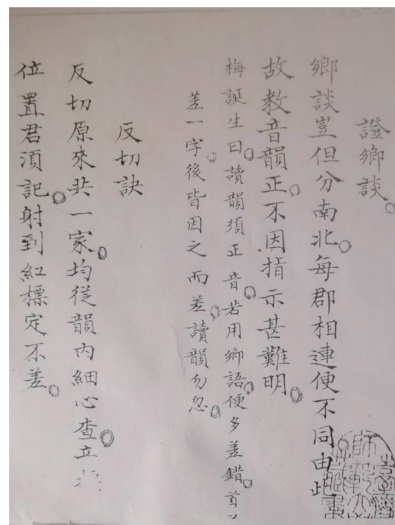 證鄉談。
鄉談豈但分南北。每郡相連便不同。由此
故教音韻正。不因指示甚難明。
梅誕生曰。讀韻須正音。若用鄉語。便多差錯。首
差一字。後皆因之。而差。讀韻勿忽。
反切訣
反切原來共一家。均從韻內細心查。立
位置君須記。射到紅標定不差。